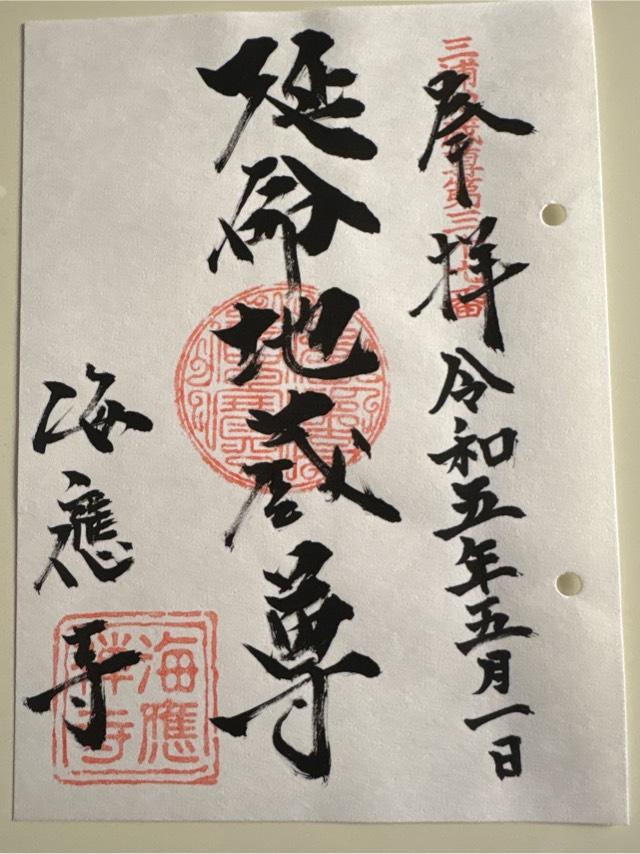 三浦地蔵尊第三十七番
奉拝
令和五年五月一日
延命地蔵尊
海應寺
海應
禪寺